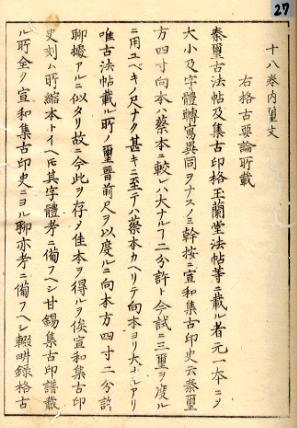 27
十八卷内璽文
右格古要論所載
秦璽古法帖及集古印格玉蘭堂法帖等ニ載ル者元一本ニヲ
大小及字體轉寫異同ヲナスノミ幹按ニ宣和集古印史云秦璽
方四寸向本ハ蔡本ニ較レハ大ナルフ二分許ト今試ニ三璽ヲ度ル
ニ用ユベキノ尺ナク甚キニ至テハ蔡本カヘリテ向本ヨリ大ナルアリ
唯古法帖載ル所ノ璽晉前尺ヲ以度ルニ向本方四寸二分許
聊據アルニ似タリ故ニ今此ヲ存メ佳本ヲ得ルヲ俟宣和集古印
史刻ム所縮本トイヘ𪜈其字體考ニ備フヘシ甘錫集古印譜載
ル所全ク宣和集古印史ニヨル聊亦考ニ備フヘシ輟畊錄格古